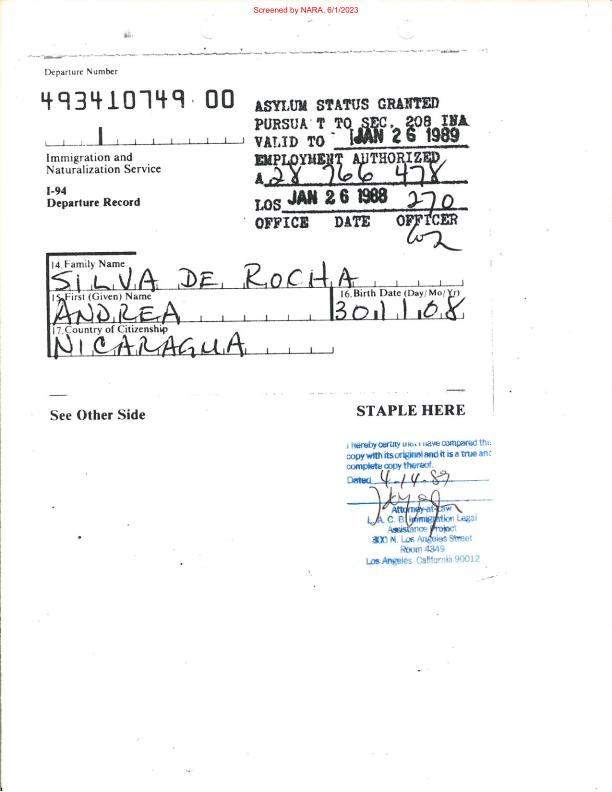 Screened by NARA, 6/1/2023
Departure Number
493410749 00
ASYLUM STATUS GRANTED
PURSUA T TO SEC. 208 INA
VALID TO JAN 26 1989
EMPLOYMENT AUTHORIZED
A 28 766 478
LOS JAN 26 1988 270
OFFICE DATE OFFICER
Immigration and
Naturalization Service
I-94
Departure Record
14. Family Name
SILVA DE ROCHA
15. First (Given) Name
ANDREA
16. Birth Date (Day/Mo/Yr)
30 11 08
17. Country of Citizenship
NICARAGUA
See Other Side
STAPLE HERE
I hereby certify that I have compared this
copy with its original and it is a true and
complete copy thereof.
Dated 4-14-89
Attorney-at-Law
L. A. C. B. Immigration Legal
Assistance Project
300 N. Los Angeles Street
Room 4349
Los Angeles California 90012